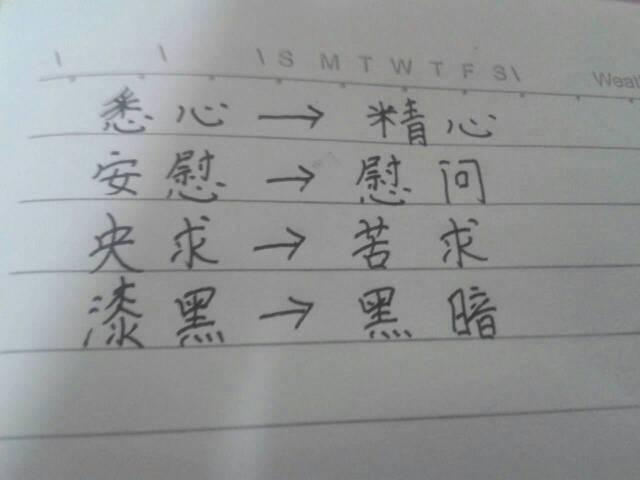 \ \ \ S M T W T F S \ Weat
悉心→精心
安慰→慰问
央求→苦求
漆黑→黑暗